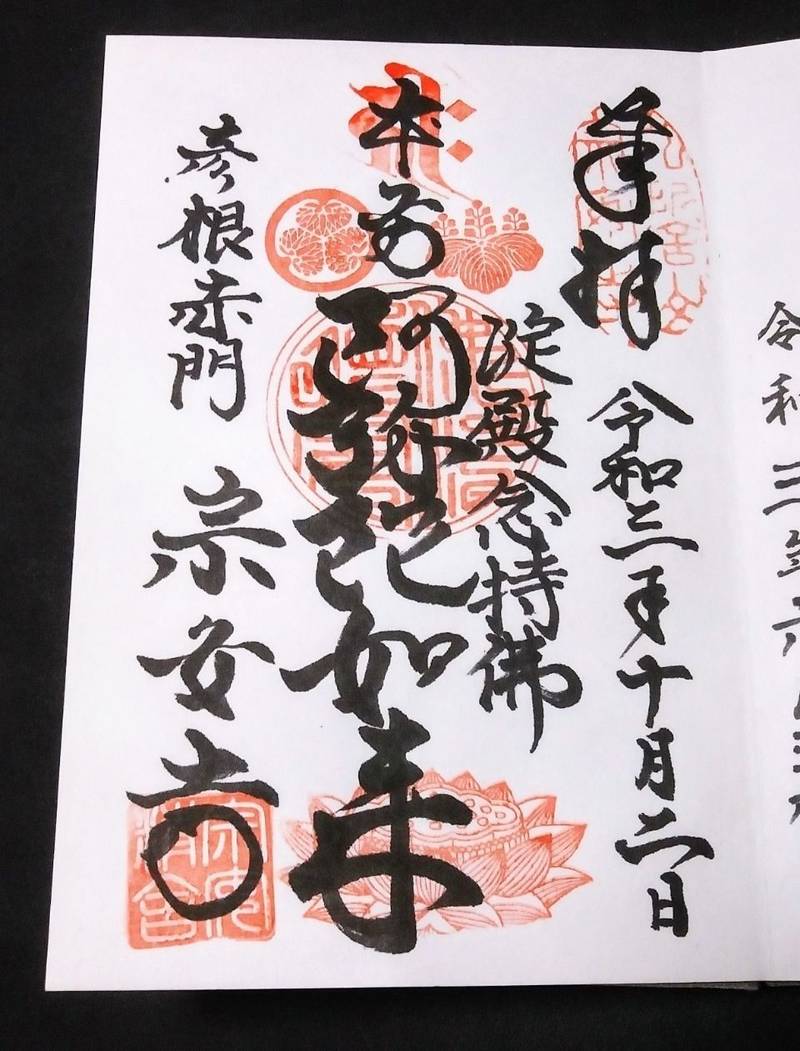 令和三年六月
奉拝 令和三年十月二日
淀殿念持佛
本尊 阿弥陀如来
彦根赤門 宗安寺